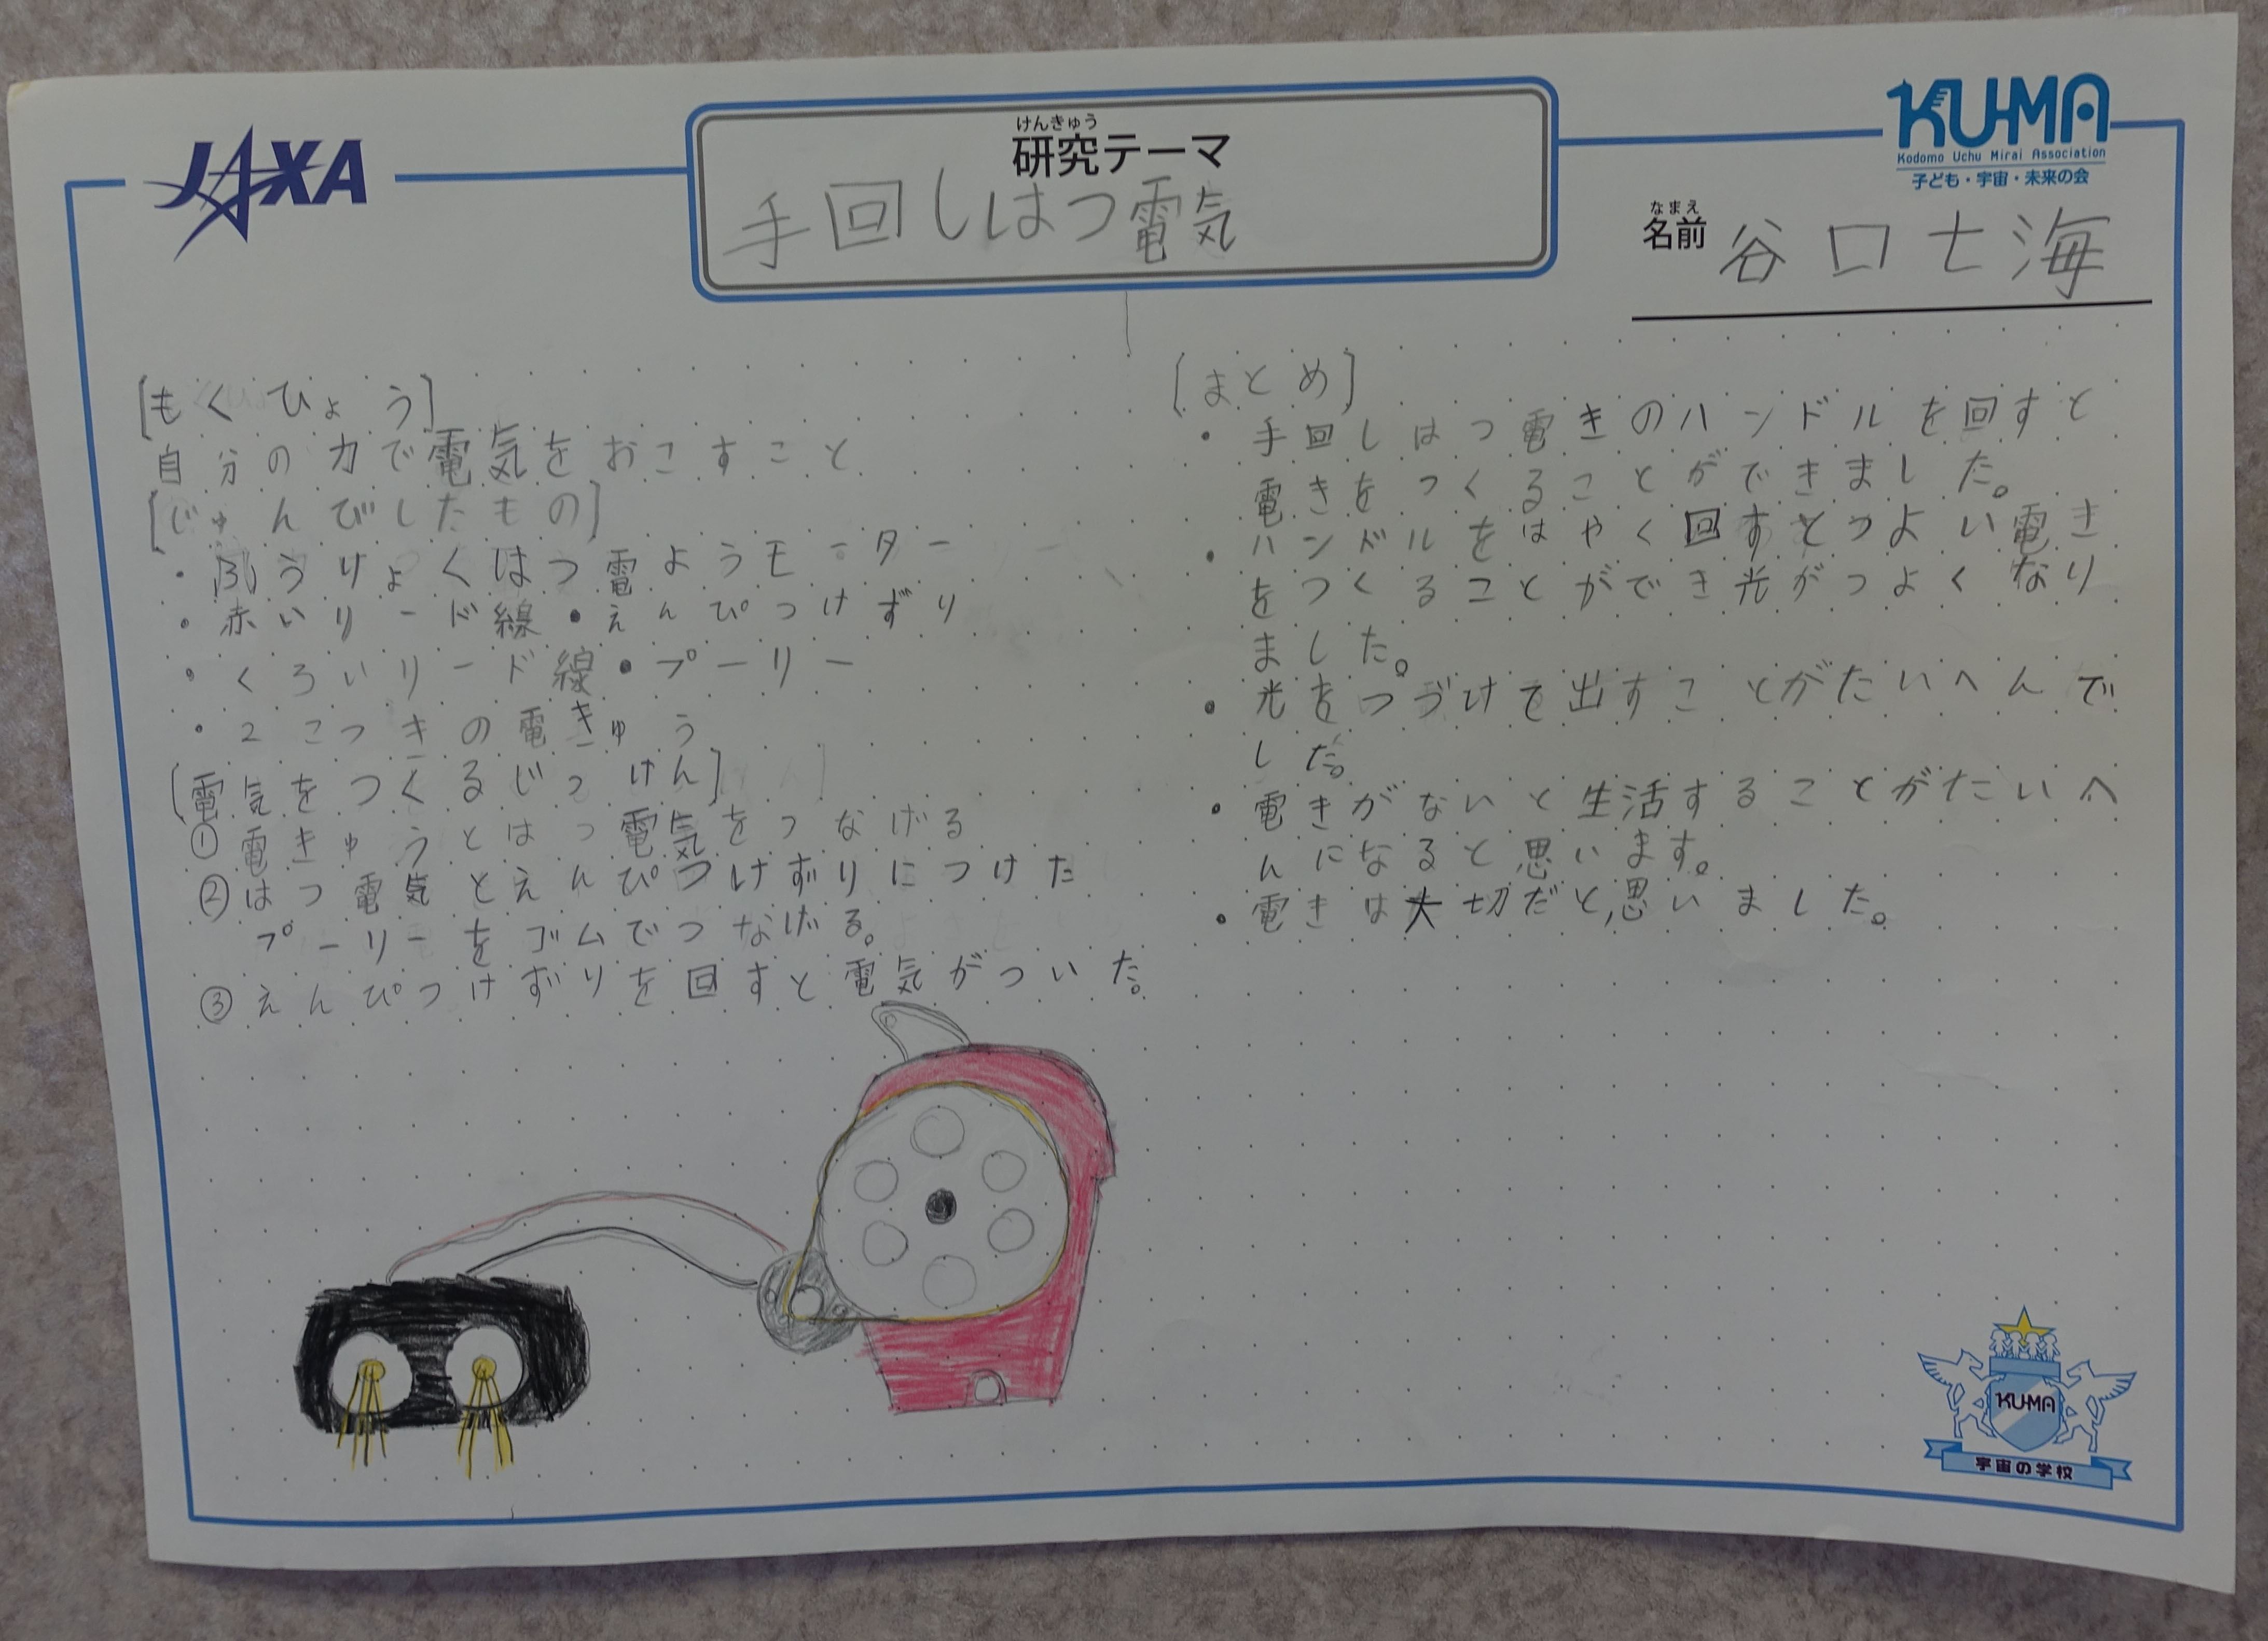 JAXA
けんきゅう
研究テーマ
手回しはつ電気
KU-MA
Kodomo Uchu Mirai Association
子ども・宇宙・未来の会
なまえ
名前 谷口七海
[もくひょう]
自分の力で電気をおこすこと
[じゅんびしたもの]
・ふうりょくはつ電ようモーター
・赤いリード線・えんぴつけずり
・くろいリード線・プーリー
・2こつきの電きゅう
[電気をつくるじっけん]
① 電きゅうとはつ電気をつなげる
② はつ電気とえんぴつけずりにつけた
プーリーをゴムでつなげる。
③ えんぴつけずりを回すと電気がついた。
[まとめ]
・手回しはつ電きのハンドルを回すと
電きをつくることができました。
・ハンドルをはやく回すとつよい電き
をつくることができ光がつよくなり
ました。
・光をつづけて出すことがたいへんで
した。
・電きがないと生活することがたいへ
んになると思います。
・電きは大切だと思いました。
KU-MA
宇宙の学校